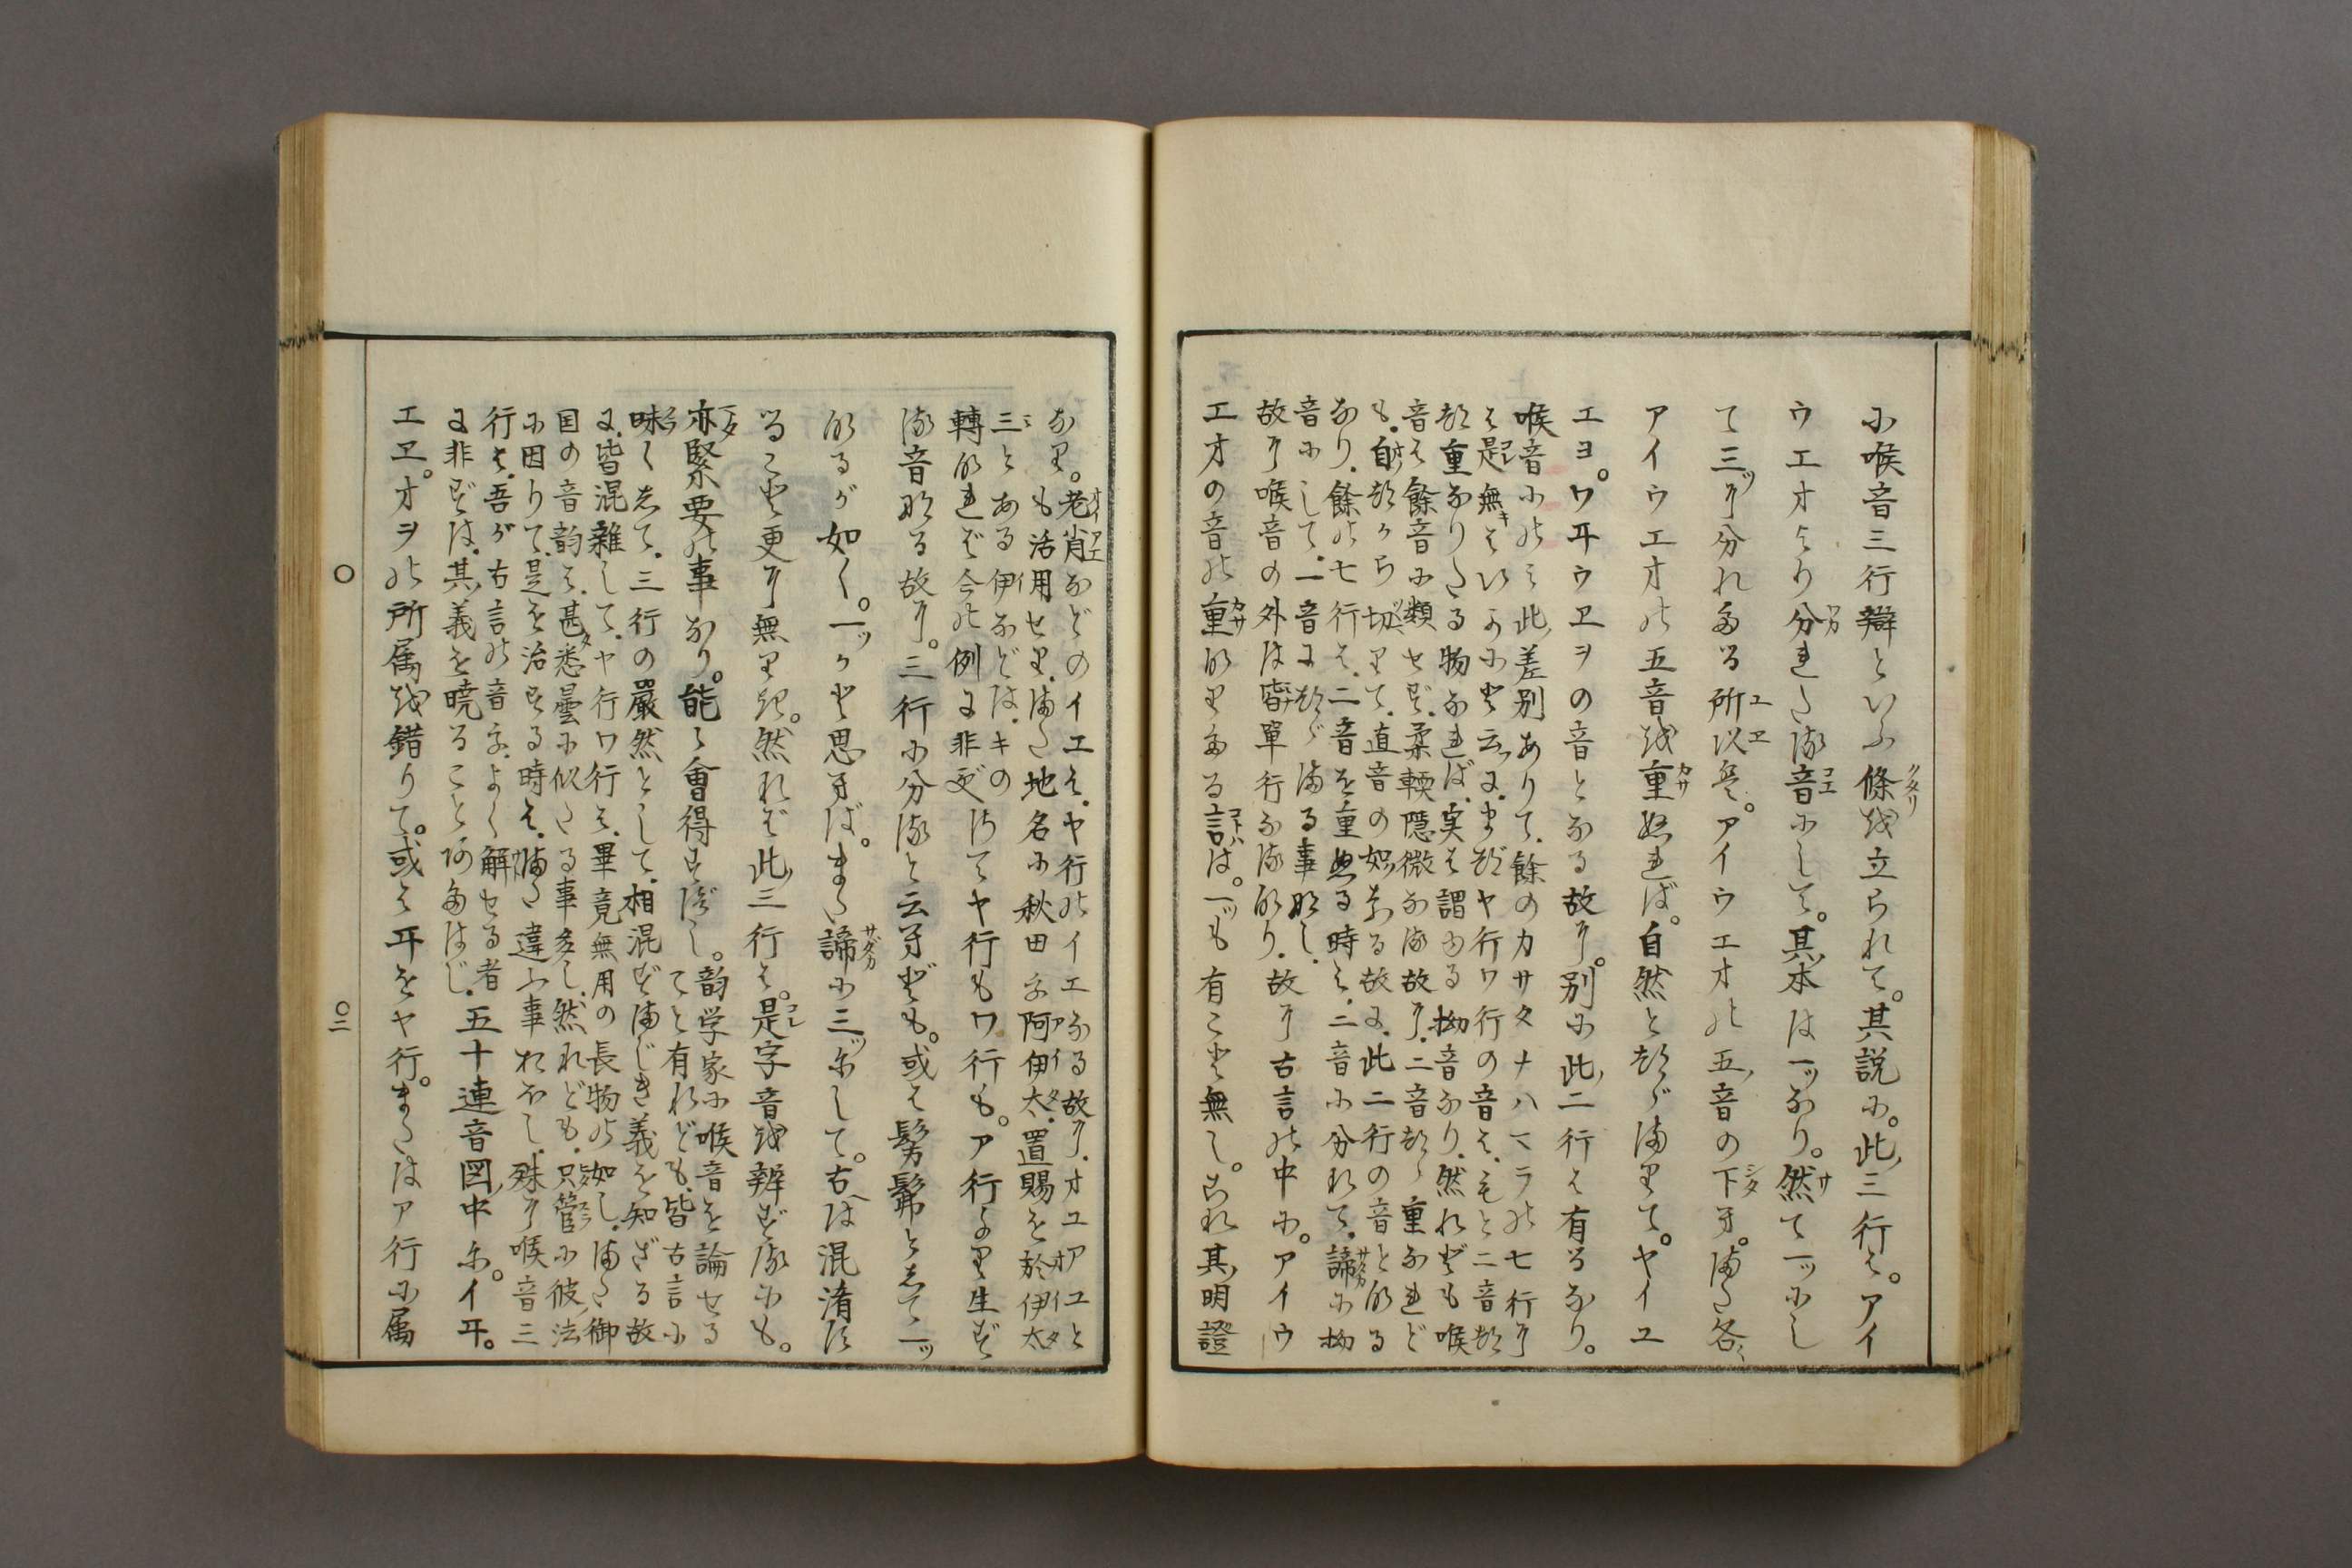 に喉音三行辯といふ條を立られて。其説に。此三行は。アイ
ウエオより分れたる音にして。其本は一ッなり。然て一ッにし
て三ッに分れたる所以は。アイウエオの五音の下に。また各〻
アイウエオの五音を重ぬれば。自然と
エヨ。ワヰウヱヲの音となる故に。別に此二行は有るなり。
喉音にのみ此差別ありて、餘のカサタナハマラの七行に
は是無きはいかにと云に、まづヤ行ワ行の音は、もと二音
重なりたる物なれば、実は謂ゆる拗音なり、然れども喉
音は餘音に類せず、柔輭隠微なる故に、二音重なれど
も、自から切りて、直音の如なる故に、此二行の音と成る
なり、餘の七行は、二音を重ぬる時は、二音に分れて、諦に拗
音にして、一音に
故に喉音の外は皆單行なるなり、故に古言の中に。アイウ
エオの音の重なりたる言は。一ッも有こと無し。これ其明證
なり。老肖などのイエは、ヤ行のイエなる故に、オユアユと
も活用せり、また地名に秋田を阿伊太、置賜を於伊太
三とある伊などは、キの
轉れるにて今の例に非ず
る音なる故に。三行に分ると云へども。或は髣髴として二ッ
なるが如く。一ッかと思へば。また諦に三ッにして。右は混淆す
ること更に無りき。然れど此三行は。是字音を辨ずるにも。
亦緊要の事なり。能〻會得すべし。
韵学家に喉音を論ぜる
てと有れども、皆古言に
味くして、三行の嚴然として、相混ずまじき義を知ざる故
に、皆混雜して、ヤ行ワ行は、畢竟無用の長物の如し、また御
国の音韵は、甚悉曇に似たる事多し、然れども、只管に彼法
に因りて、是を治むる時は、また違ふ事おほし、殊に喉音三
行は、吾が古言の音を、よく解せる者
に非ずは、其義を曉ることあたはじ、
五十連音図中に。イヰ。
エヱ。オヲの所属を錯りて。或はヰをヤ行。またはア行に属
〇
〇三